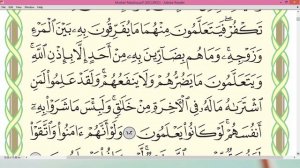 تَكْفُرْ فَيَتَعَلَّمُونَ مِنْهُمَا مَا يُفَرِّقُونَ بِهِۦ بَيْنَ ٱلْمَرْءِ
وَزَوْجِهِۦ وَمَا هُم بِضَآرِّينَ بِهِۦ مِنْ أَحَدٍ إِلَّا بِإِذْنِ ٱللَّهِ
وَيَتَعَلَّمُونَ مَا يَضُرُّهُمْ وَلَا يَنفَعُهُمْ وَلَقَدْ عَلِمُوا۟ لَمَنِ
ٱشْتَرَىٰهُ مَا لَهُۥ فِى ٱلْـَٔاخِرَةِ مِنْ خَلَٰقٍ وَلَبِئْسَ مَا شَرَوْا۟ بِهِۦٓ
أَنفُسَهُمْ لَوْ كَانُوا۟ يَعْلَمُونَ ١٠٢ وَلَوْ أَنَّهُمْ ءَامَنُوا۟ وَٱتَّقَوْا۟